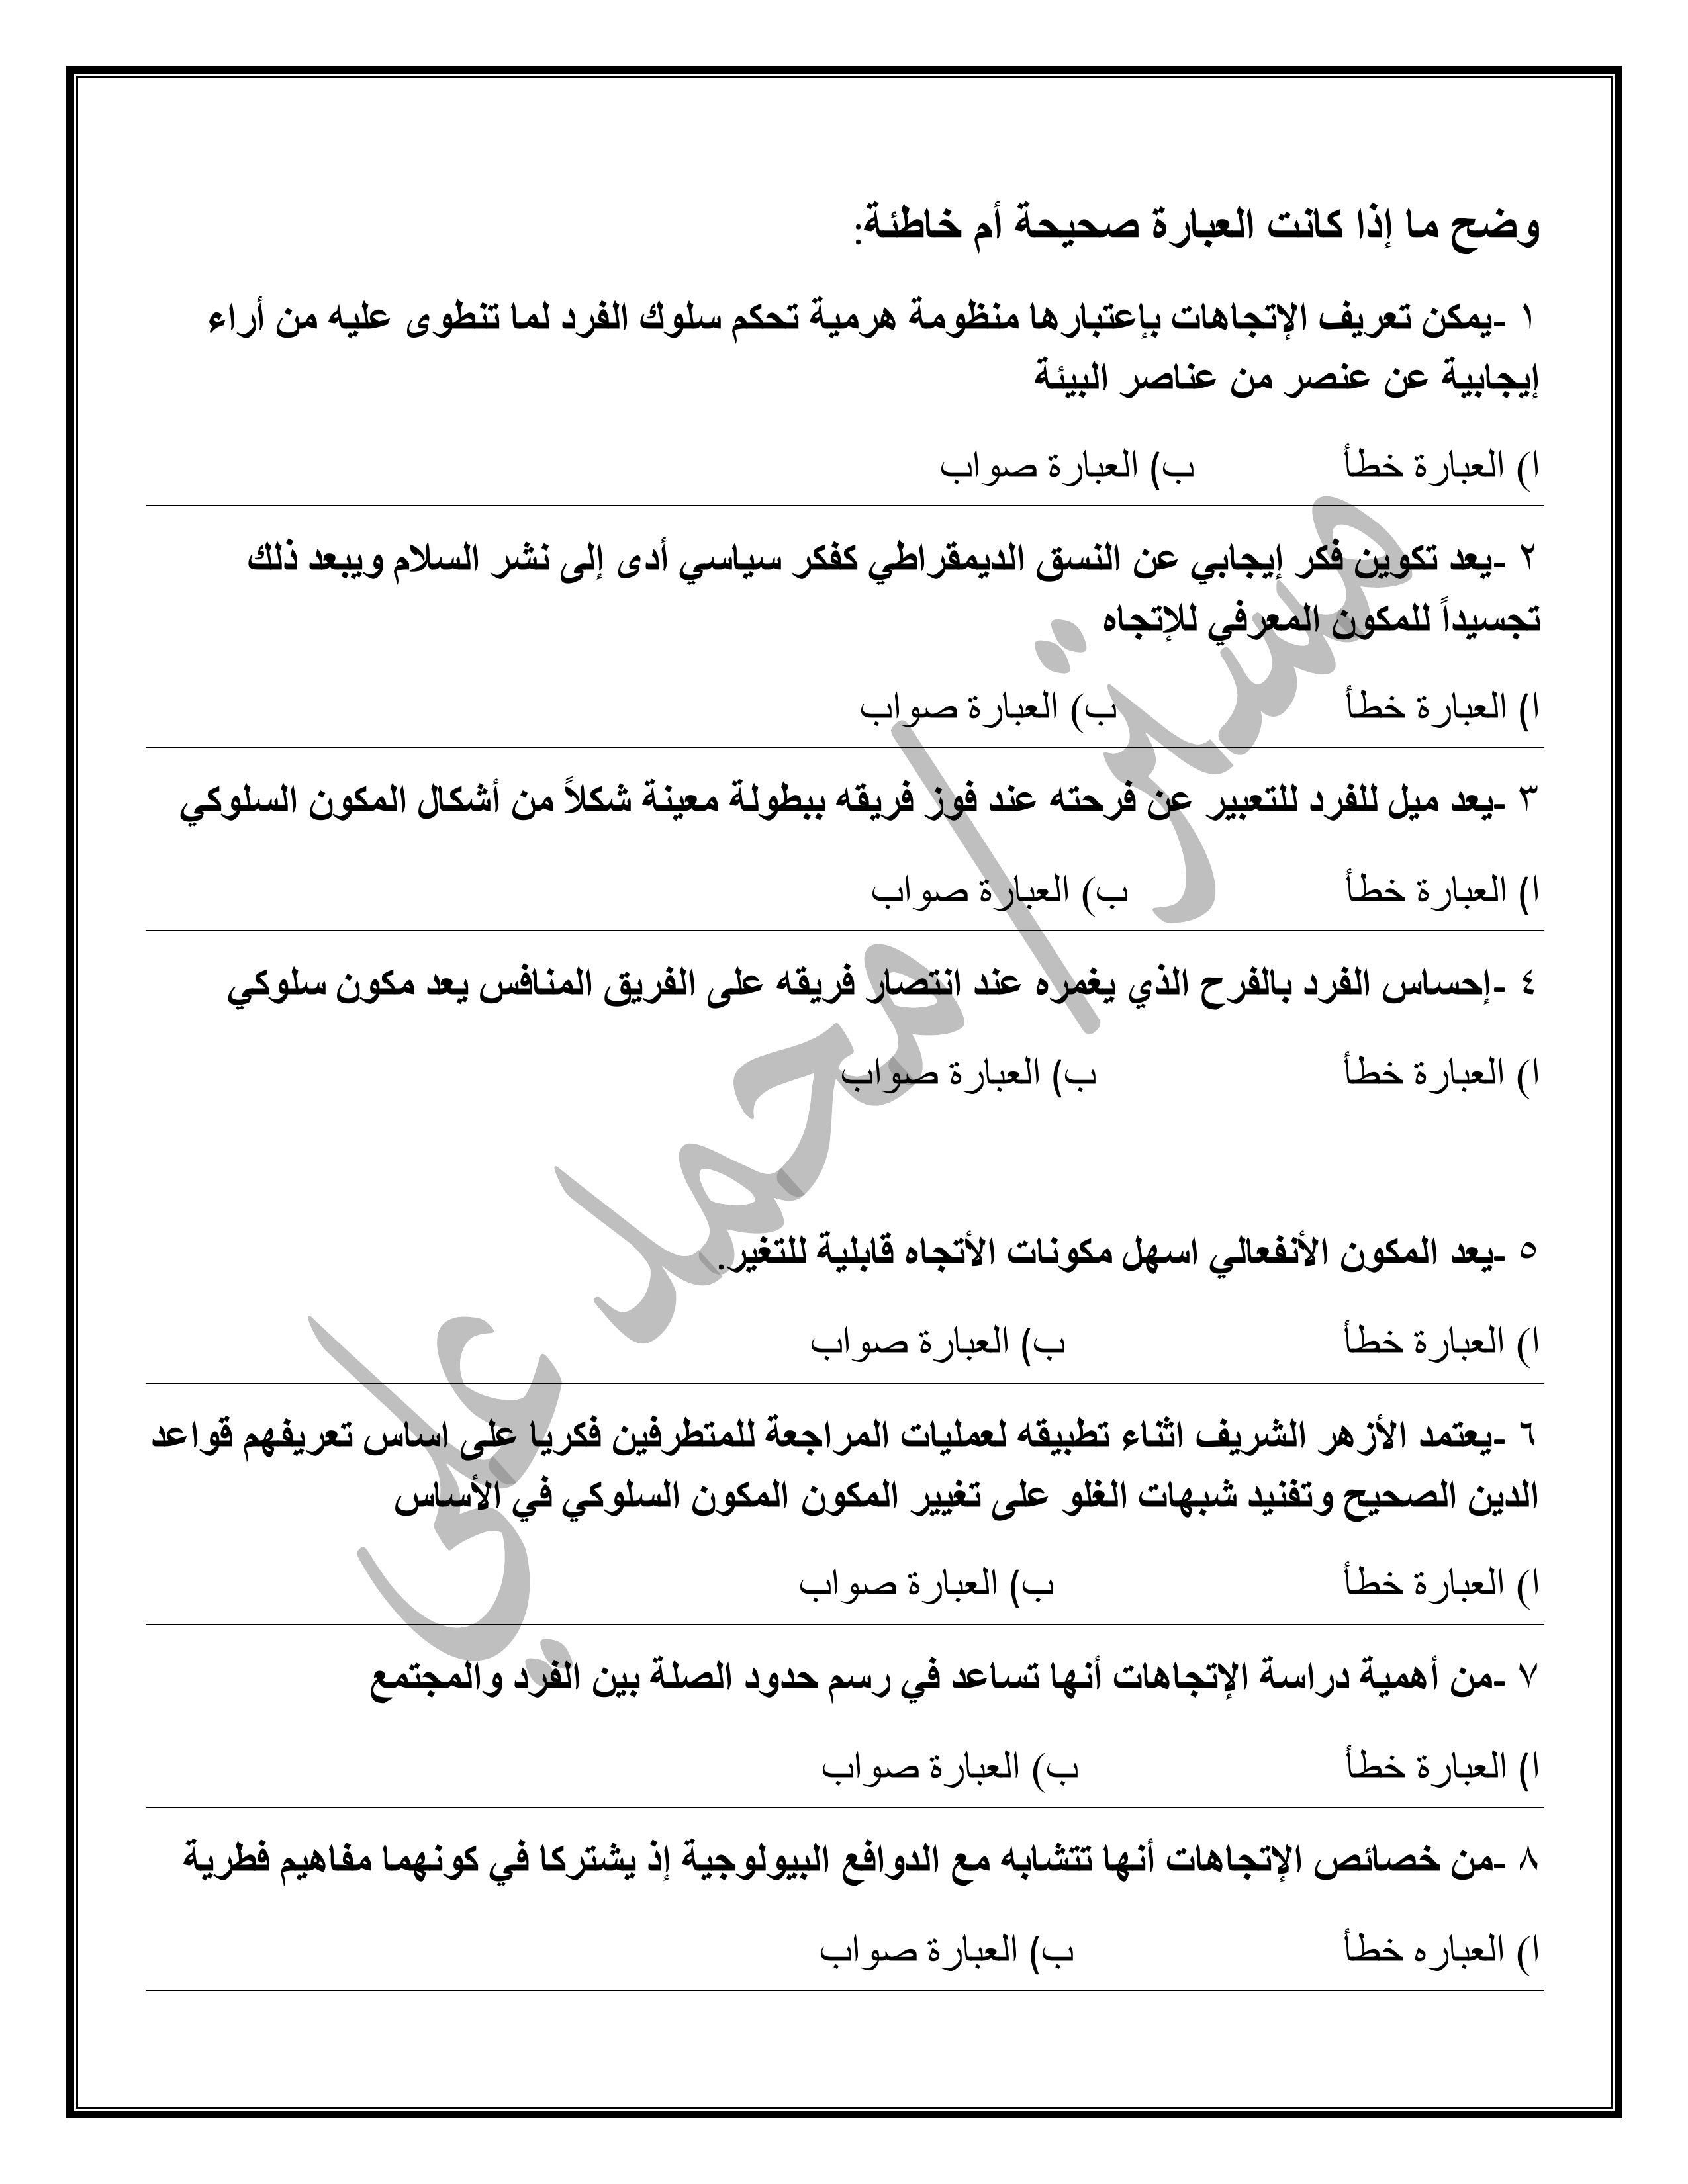 وضح ما إذا كانت العبارة صحيحة أم خاطئة:
١ -يمكن تعريف الإتجاهات بإعتبارها منظومة هرمية تحكم سلوك الفرد لما تنطوى عليه من أراء
إيجابية عن عنصر من عناصر البيئة
ا) العبارة خطأ ب) العبارة صواب
٢ -يعد تكوين فكر إيجابي عن النسق الديمقراطي كفكر سياسي أدى إلى نشر السلام ويبعد ذلك
تجسيداً للمكون المعرفي للإتجاه
ا) العبارة خطأ ب) العبارة صواب
٣ -يعد ميل للفرد للتعبير عن فرحته عند فوز فريقه ببطولة معينة شكلاً من أشكال المكون السلوكي
ا) العبارة خطأ ب) العبارة صواب
٤ -إحساس الفرد بالفرح الذي يغمره عند انتصار فريقه على الفريق المنافس يعد مكون سلوكي
ا) العبارة خطأ ب) العبارة صواب
٥ -يعد المكون الأنفعالي اسهل مكونات الأتجاه قابلية للتغير.
ا) العبارة خطأ ب) العبارة صواب
٦ -يعتمد الأزهر الشريف اثناء تطبيقه لعمليات المراجعة للمتطرفين فكريا على اساس تعريفهم قواعد
الدين الصحيح وتفنيد شبهات الغلو على تغيير المكون المكون السلوكي في الأساس
ا) العبارة خطأ ب) العبارة صواب
٧ -من أهمية دراسة الإتجاهات أنها تساعد في رسم حدود الصلة بين الفرد والمجتمع
ا) العبارة خطأ ب) العبارة صواب
٨ -من خصائص الإتجاهات أنها تتشابه مع الدوافع البيولوجية إذ يشتركا في كونهما مفاهيم فطرية
ا) العباره خطأ ب) العبارة صواب
مستر/ محمد علي